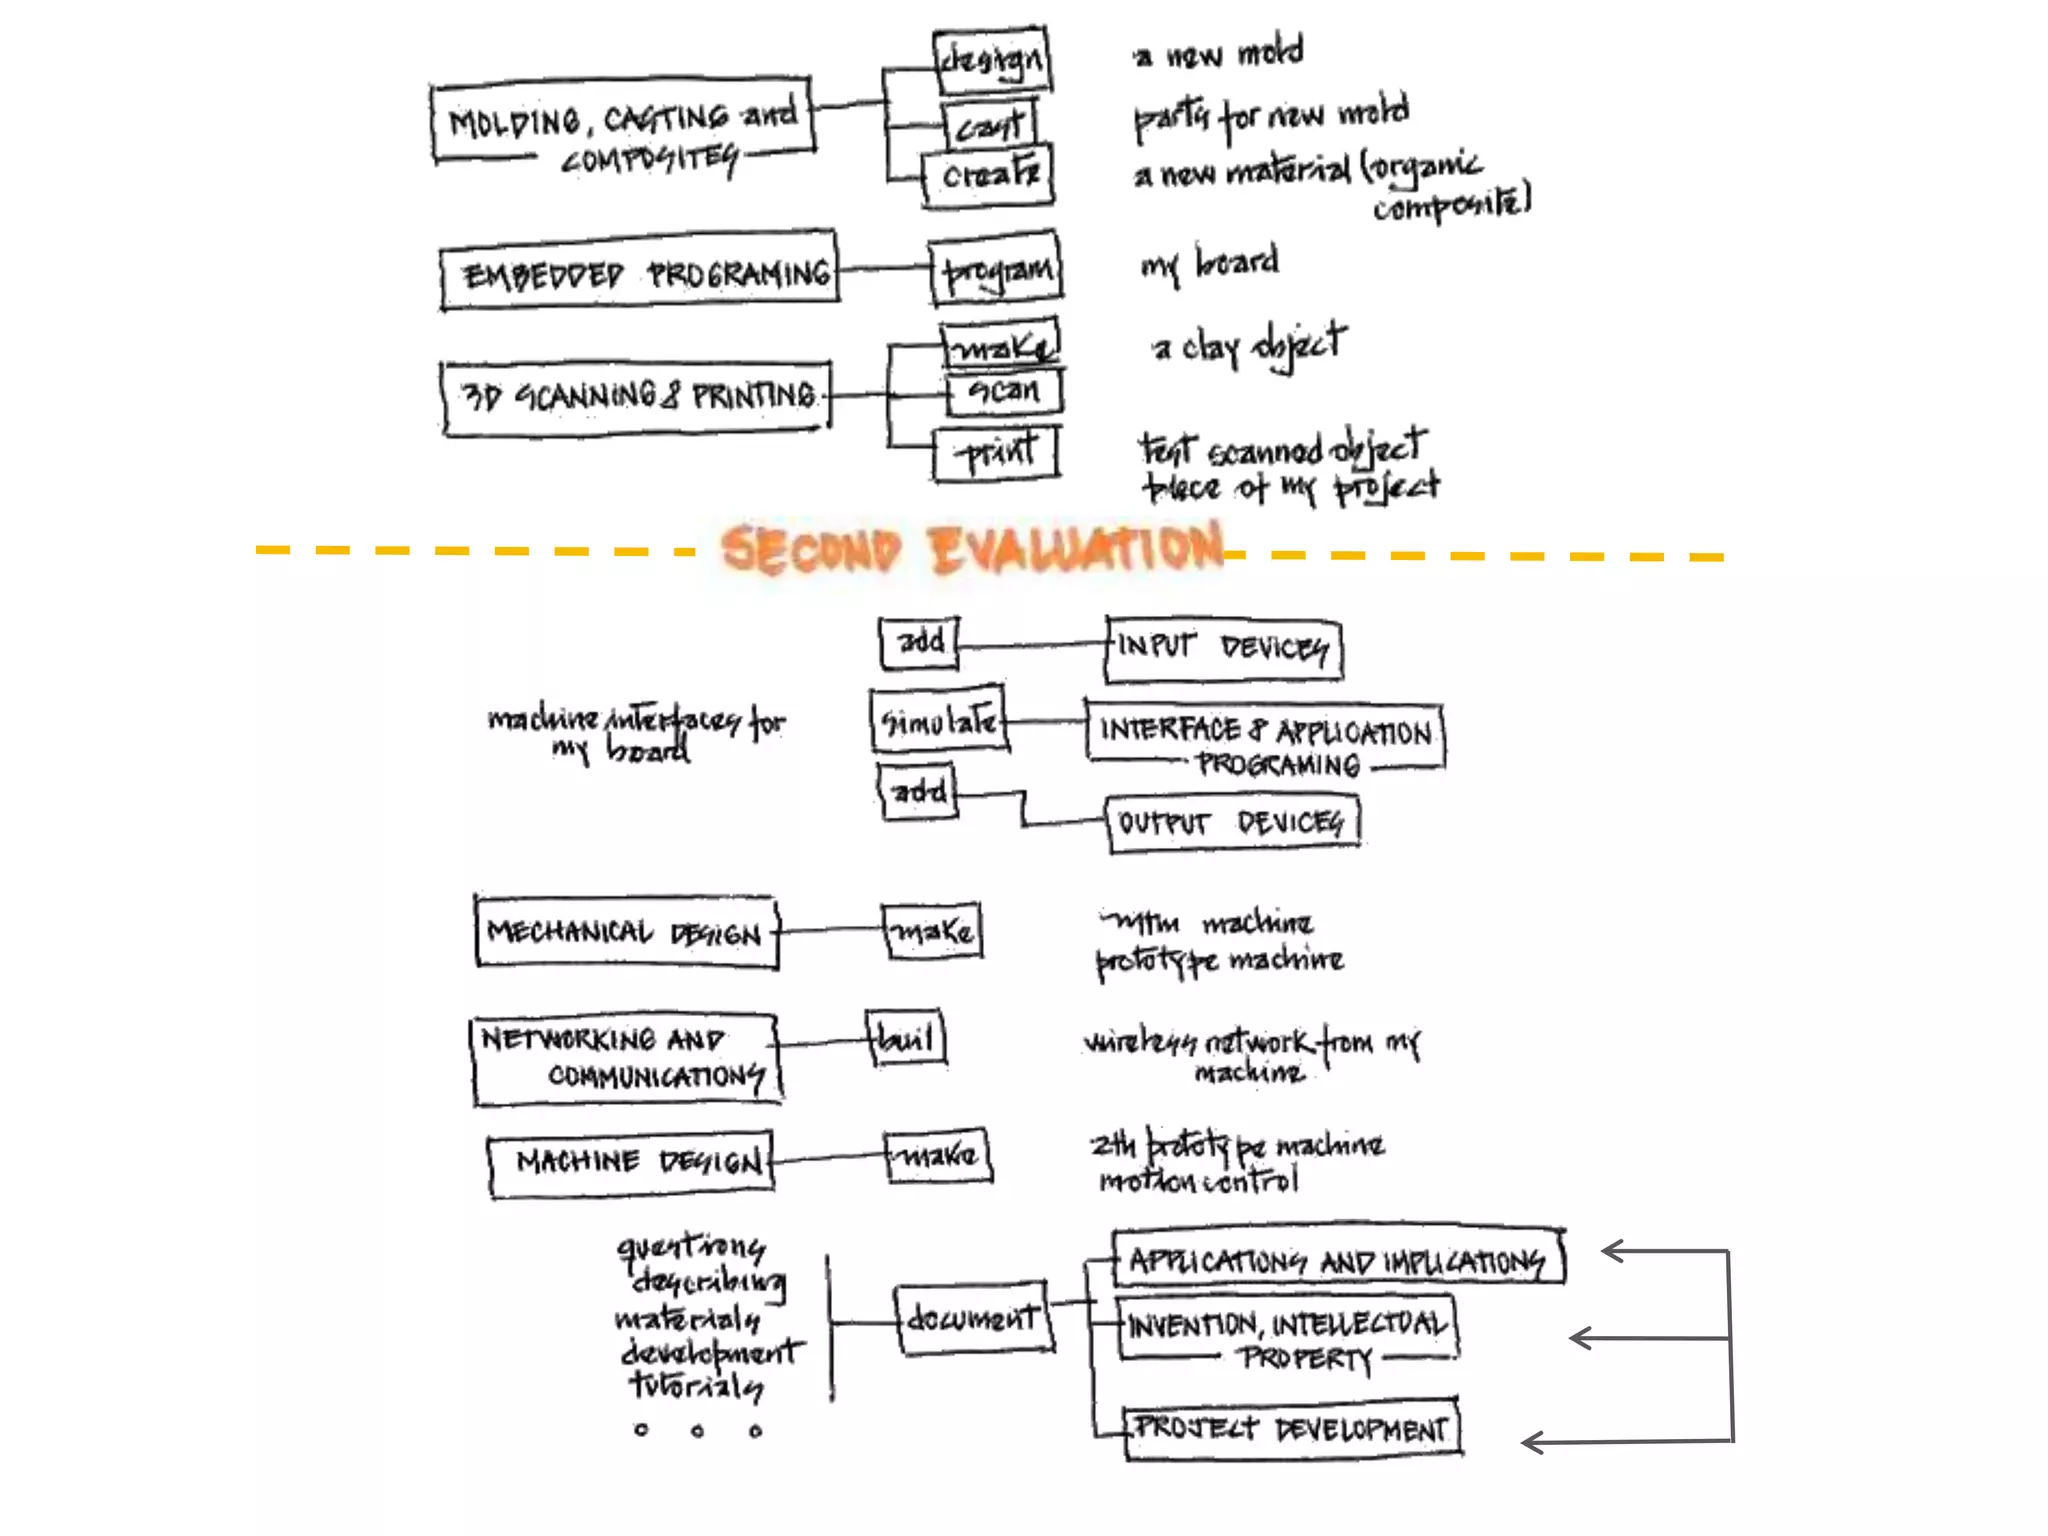 design a new mold
MOLDING, CASTING and
COMPOSITES
cast parts for new mold
create a new material (organic
composite)
EMBEDDED PROGRAMING program my board
make a clay object
3D SCANNING & PRINTING scan
print test scanned object
piece of my project
SECOND EVALUATION
add INPUT DEVICES
machine interfaces for
my board
simulate INTERFACE & APPLICATION
PROGRAMING
add OUTPUT DEVICES
MECHANICAL DESIGN make mtm machine
prototype machine
NETWORKING AND
COMMUNICATIONS
buil wireless network from my
machine
MACHINE DESIGN make 2th prototype machine
motion control
questions
describing
materials
development
tutorials
document
APPLICATIONS AND IMPLICATIONS
INVENTION, INTELLECTUAL
PROPERTY
PROJECT DEVELOPMENT